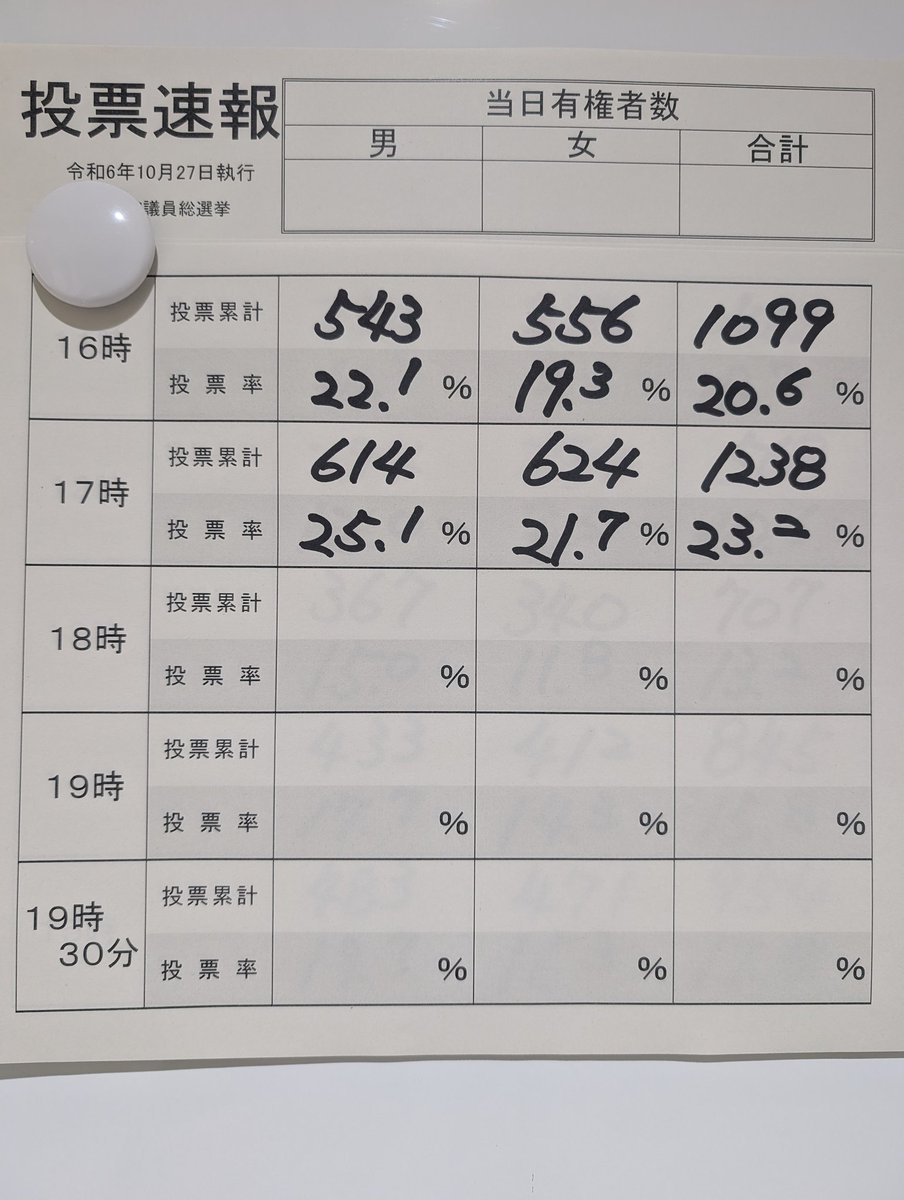 投票速報
当日有権者数
男 女 合計
令和6年10月27日執行
議員総選挙
16時 投票累計 543 556 1099
投票率 22.1 % 19.3 % 20.6 %
17時 投票累計 614 624 1238
投票率 25.1 % 21.7 % 23.2 %
18時 投票累計
投票率 % % %
19時 投票累計
投票率 % % %
19時30分 投票累計
投票率 % % %